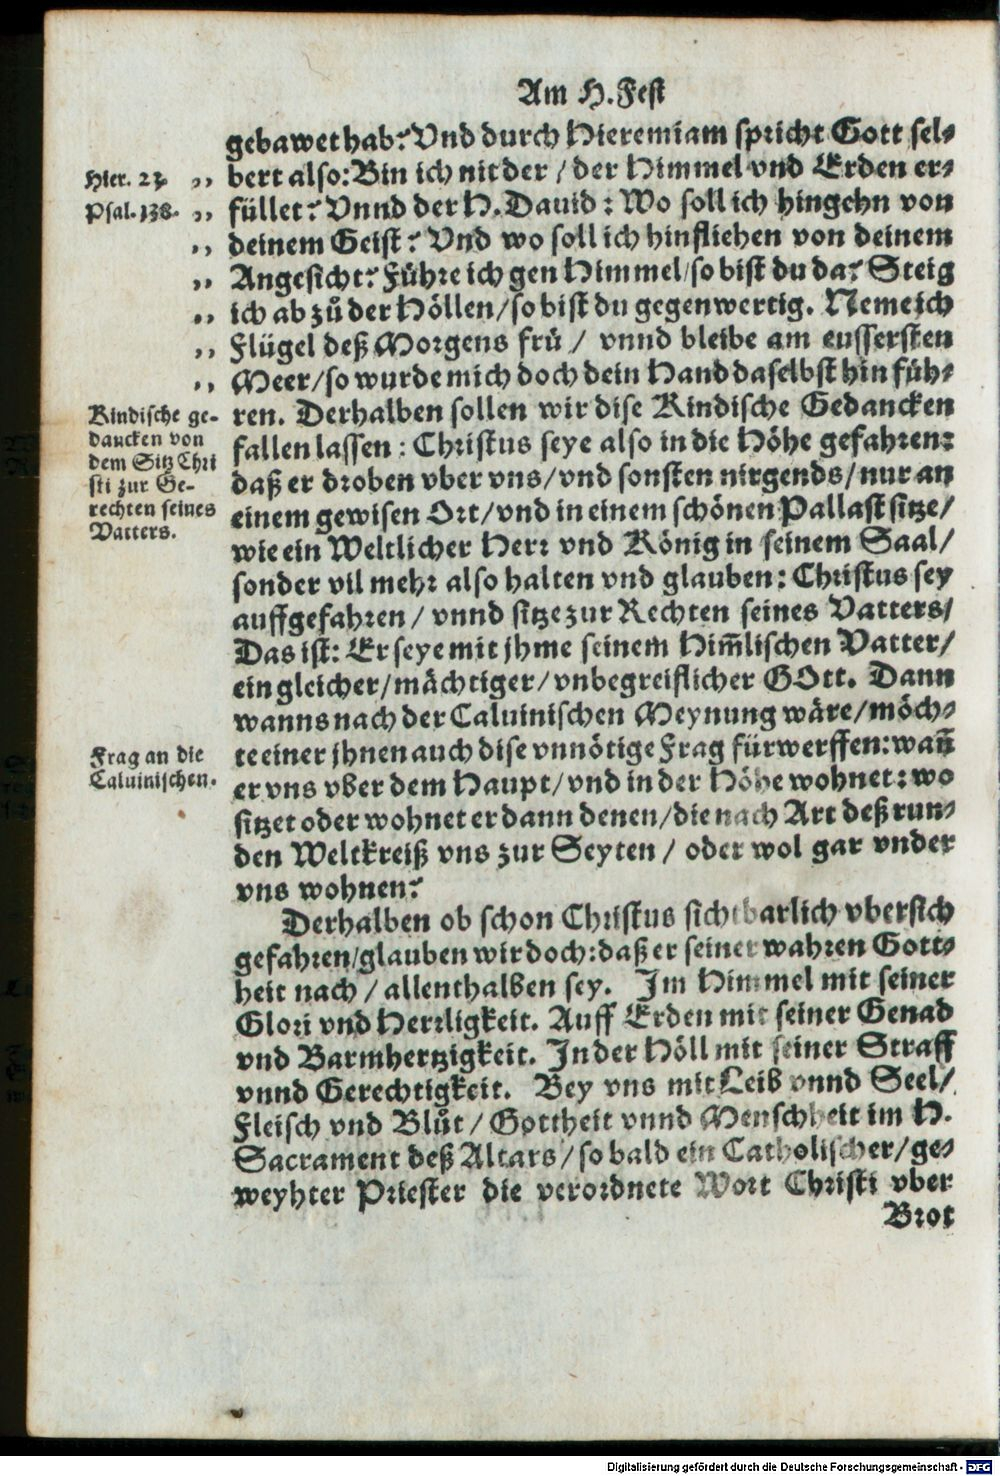 Am H. Fest
gebawet hab? Vnd durch Hieremiam spricht Gott sel-
Hier. 23. „ bert also: Bin ich nit der / der Himmel vnd Erden er-
Psal. 138. „ füllet? Vnnd der H. Dauid: Wo soll ich hingehn von
„ deinem Geist? Vnd wo soll ich hinfliehen von deinem
„ Angesicht? Führe ich gen Himmel / so bist du da? Steig
„ ich ab zů der Höllen / so bist du gegenwertig. Neme ich
„ Flügel deß Morgens frü / vnnd bleibe am eussersten
„ Meer / so wurde mich doch dein Hand daselbst hin füh-
ren. Derhalben sollen wir dise Kindische Gedancken
fallen lassen: Christus seye also in die Höhe gefahren:
daß er droben vber vns / vnd sonsten nirgends / nur an
einem gewisen Ort / vnd in einem schönen Pallast sitze /
wie ein Weltlicher Herr vnd König in seinem Saal /
sonder vil mehr also halten vnd glauben: Christus sey
auffgefahren / vnnd sitze zur Rechten seines Vatters /
Das ist: Er seye mit jhme seinem Him̃lischen Vatter /
ein gleicher / mächtiger / vnbegreiflicher GOtt. Dann
wanns nach der Caluinischen Meynung wäre / möch-
te einer jhnen auch dise vnnötige Frag fürwerffen: wañ
er vns vber dem Haupt / vnd in der Höhe wohnet: wo
sitzet oder wohnet er dann denen / die nach Art deß run-
den Weltkreiß vns zur Seyten / oder wol gar vnder
vns wohnen?
Kindische ge-
dancken von
dem Sitz Chri
sti zur Ge-
rechten seines
Vatters.
Frag an die
Caluinischen.
Derhalben ob schon Christus sichtbarlich vbersich
gefahren / glauben wir doch: daß er seiner wahren Gott-
heit nach / allenthalben sey. Im Himmel mit seiner
Glori vnd Herrligkeit. Auff Erden mit seiner Genad
vnd Barmhertzigkeit. In der Höll mit seiner Straff
vnnd Gerechtigkeit. Bey vns mit Leib vnnd Seel /
Fleisch vnd Blůt / Gottheit vnnd Menschheit im H.
Sacrament deß Altars / so bald ein Catholischer / ge-
weyhter Priester die verordnete Wort Christi vber
Brot
Digitalisierung gefördert durch die Deutsche Forschungsgemeinschaft - DFG